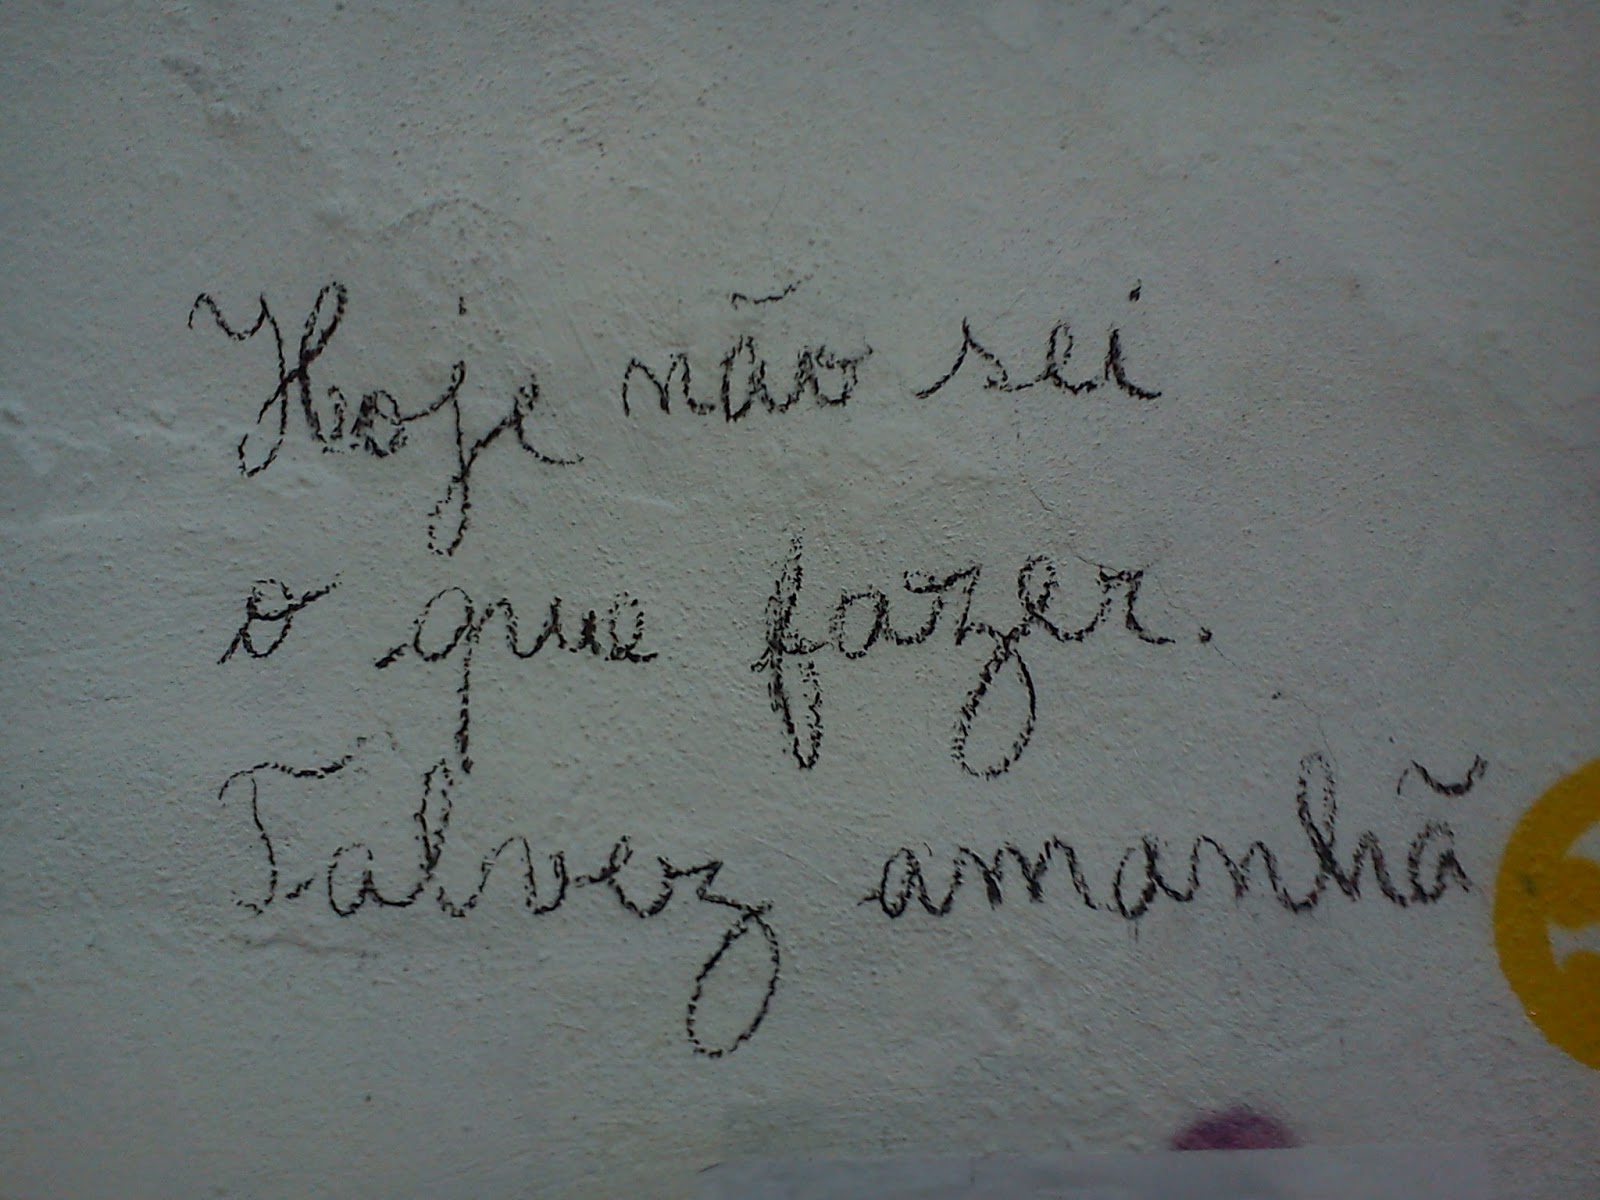 Hoje não sei
o que fazer.
Talvez amanhã